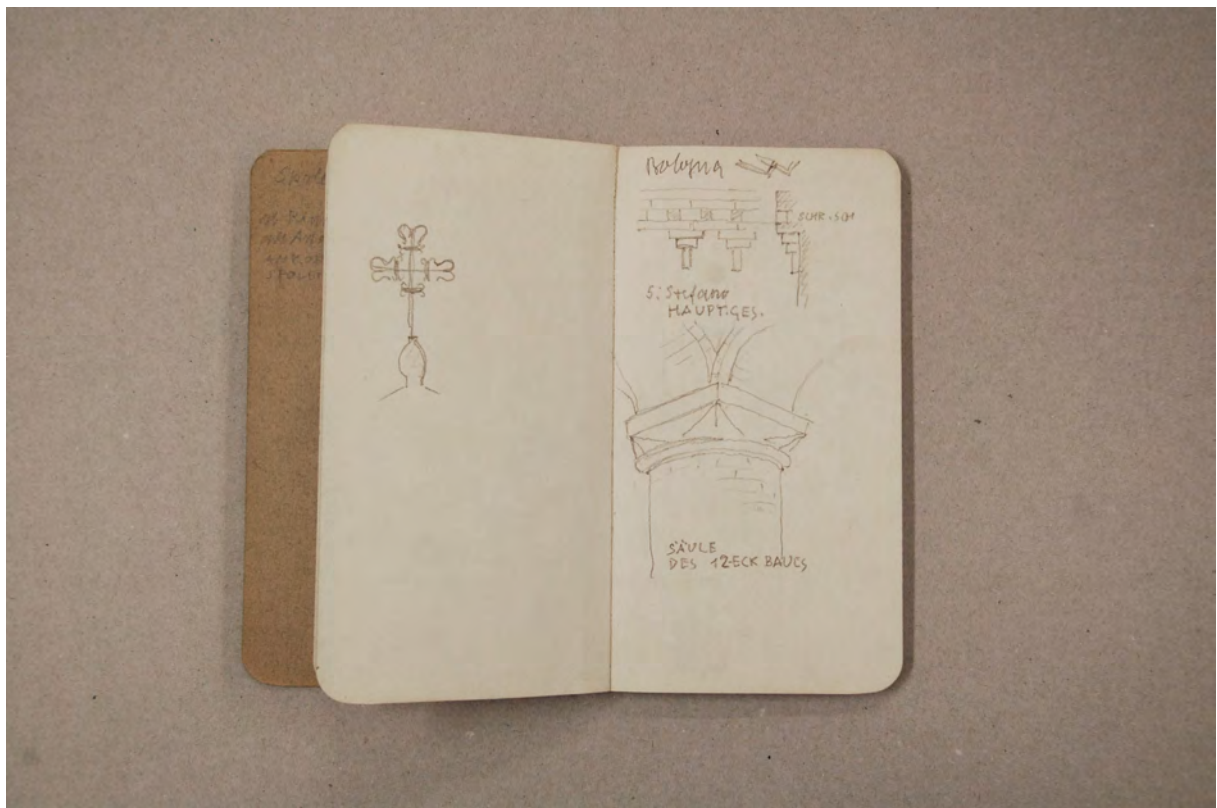 Bologna
SCHR. SCH
S. Stefano
HAUPT.GES.
SÄULE
DES 12-ECK BAUES